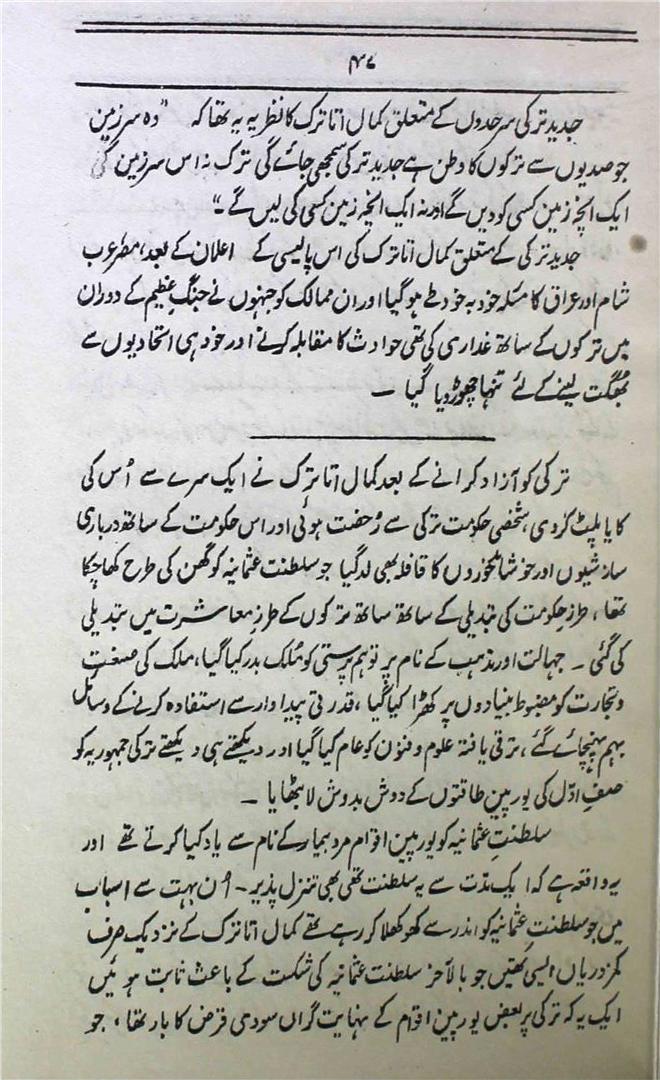 ۴۷
جدید ترکی سرحدوں کے متعلق کمال اتاترک کا نظریہ یہ تھا کہ "وہ سرزمین
جو صدیوں سے ترکوں کا وطن ہے جدید ترکی سمجھی جائے گی ترک نہ اس سرزمین کی
ایک انچ زمین کسی کو دیں گے اور نہ ایک انچ زمین کسی کی لیں گے۔"
جدید ترکی کے متعلق کمال اتاترک کی اس پالیسی کے اعلان کے بعد، مصر، عرب
شام اور عراق کا مسئلہ خود بہ خود طے ہوگیا اور ان ممالک کو جنہوں نے جنگِ عظیم کے دوران
میں ترکوں کے ساتھ غداری کی تھی حوادث کا مقابلہ کرنے اور خود ہی اتحادیوں سے
بھگت لینے کے لئے تنہا چھوڑ دیا گیا ۔
ترکی کو آزاد کرانے کے بعد کمال اتاترک نے ایک سرے سے اُس کی
کایا پلیٹ کردی، شخصی حکومت ترکی سے رُخصت ہوئی اور اس حکومت کے ساتھ درباری
سازشیوں اور خوشامدخوروں کا قافلہ بھی لد گیا جو سلطنت عثمانیہ کو گھن کی طرح کھا چکا
تھا، طرزِ حکومت کی تبدیلی کے ساتھ ساتھ ترکوں کے طرزِ معاشرت میں تبدیلی
کی گئی ۔ جہالت اور مذہب کے نام پر توہم پرستی کو مُلک بدر کیا گیا، ملک کی صنعت
و تجارت کو مضبوط بنیادوں پر کھڑا کیا گیا، قدرتی پیداوار سے استفادہ کرنے کے وسائل
بہم پہنچائے گئے، ترقی یافتہ علوم و فنون کو عام کیا گیا اور دیکھتے ہی دیکھتے ترکی جمہوریہ کو
صفِ اوّل کی یورپین طاقتوں کے دوش بدوش لا بٹھایا ۔
سلطنتِ عثمانیہ کو یورپین اقوام مردِ بیمار کے نام سے یاد کیا کرتے تھے اور
یہ واقعہ ہے کہ ایک مدّت سے یہ سلطنت تھی بھی تنزل پذیر ۔ اُن بہت سے اسباب
میں جو سلطنتِ عثمانیہ کو اندر سے کھوکھلا کر رہے تھے کمال اتاترک کے نزدیک صرف
کمزوریاں ایسی تھیں جو بالآخر سلطنت عثمانیہ کی شکست کے باعث ثابت ہوئیں
ایک یہ کہ ترکی پر بعض یورپین اقوام کے نہایت گراں سودی قرض کا بار تھا، جو